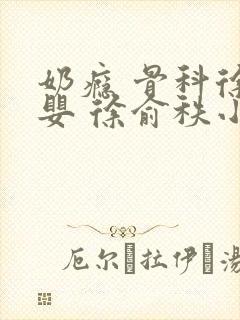 奶瘾 骨科徐
婴 徐俞秩小
厄尔·拉伊·湯